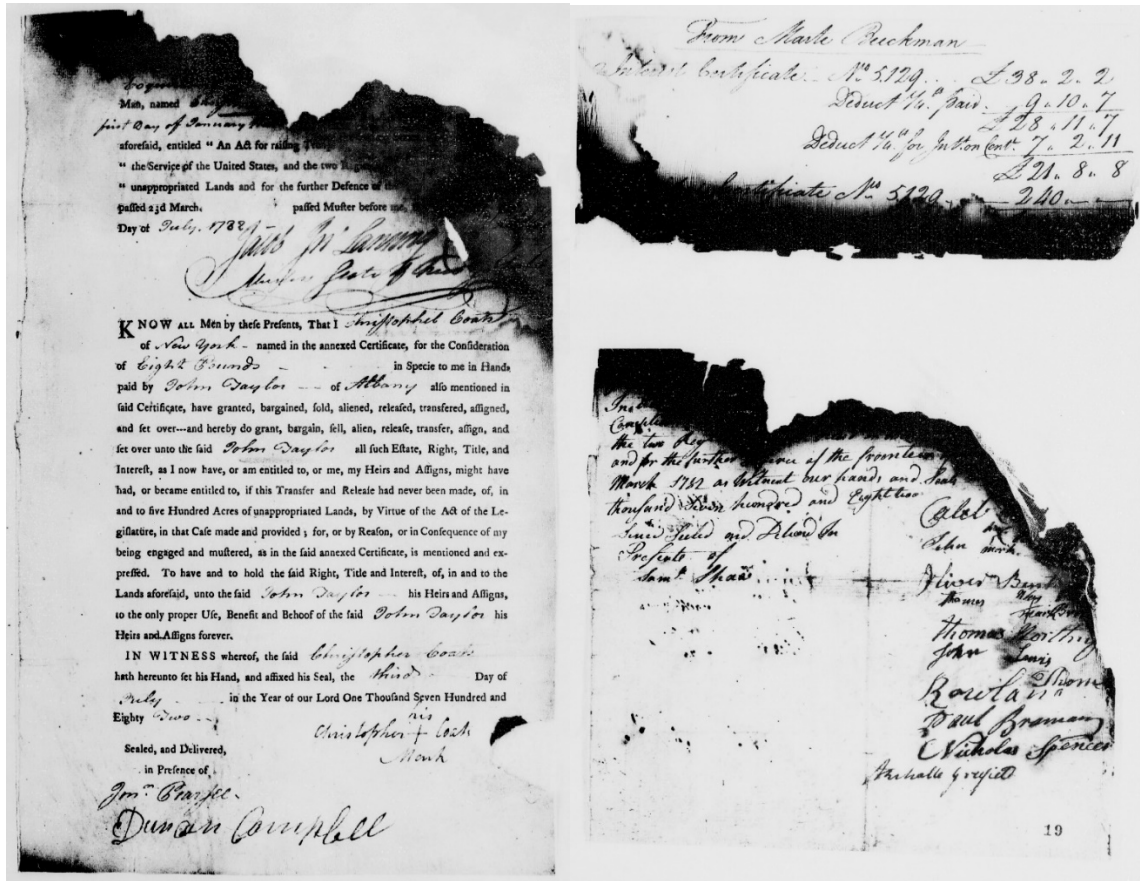 Man, named
first Day of January
aforesaid, entitled “ An Act for raising
“ the Service of the United States, and the two
“ unappropriated Lands and for the further Defence of
passed 23d March, passed Muster before me,
Day of July. 1782 -
KNOW ALL Men by these Presents, That I Christopher Coats
of New York - named in the annexed Certificate, for the Consideration
of Eight Pounds - in Specie to me in Hand
paid by John Taylor - of Albany also mentioned in
said Certificate, have granted, bargained, sold, aliened, released, transfered, assigned,
and set over---and hereby do grant, bargain, sell, alien, release, transfer, assign, and
set over unto the said John Taylor all such Estate, Right, Title, and
Interest, as I now have, or am entitled to, or me, my Heirs and Assigns, might have
had, or became entitled to, if this Transfer and Release had never been made, of, in
and to five Hundred Acres of unappropriated Lands, by Virtue of the Act of the Le-
gislature, in that Case made and provided ; for, or by Reason, or in Consequence of my
being engaged and mustered, as in the said annexed Certificate, is mentioned and ex-
pressed. To have and to hold the said Right, Title and Interest, of, in and to the
Lands aforesaid, unto the said John Taylor - his Heirs and Assigns,
to the only proper Use, Benefit and Behoof of the said John Taylor his
Heirs and Assigns forever.
IN WITNESS whereof, the said Christopher Coats
hath hereunto set his Hand, and affixed his Seal, the third - Day of
July - in the Year of our Lord One Thousand Seven Hundred and
Eighty Two -
his
Christopher + Coats
Mark
Sealed, and Delivered,
in Presence of
Duncan Campbell
From Mark Beeckman
Interest Certificate - No 5129. . £38 . 2 . 2
Deduct paid . 9 . 10 . 7
£28 . 11 . 7
Deduct for 7 . 2 . 11
£21 . 8 . 8
Certificate Nos 5129 - 240 . - . -
the two Reg
and for the further of the frountein
March 1782 as Witnes our hands and Seals
thousand Seven hundred and Eightwo
Presents of
Saml Shaw
Caleb
John mark
Oliver
Thomas
Thomas Worthy
John Lewis
Rowland Thom
Paul Braman
Nicholas Spencer
19